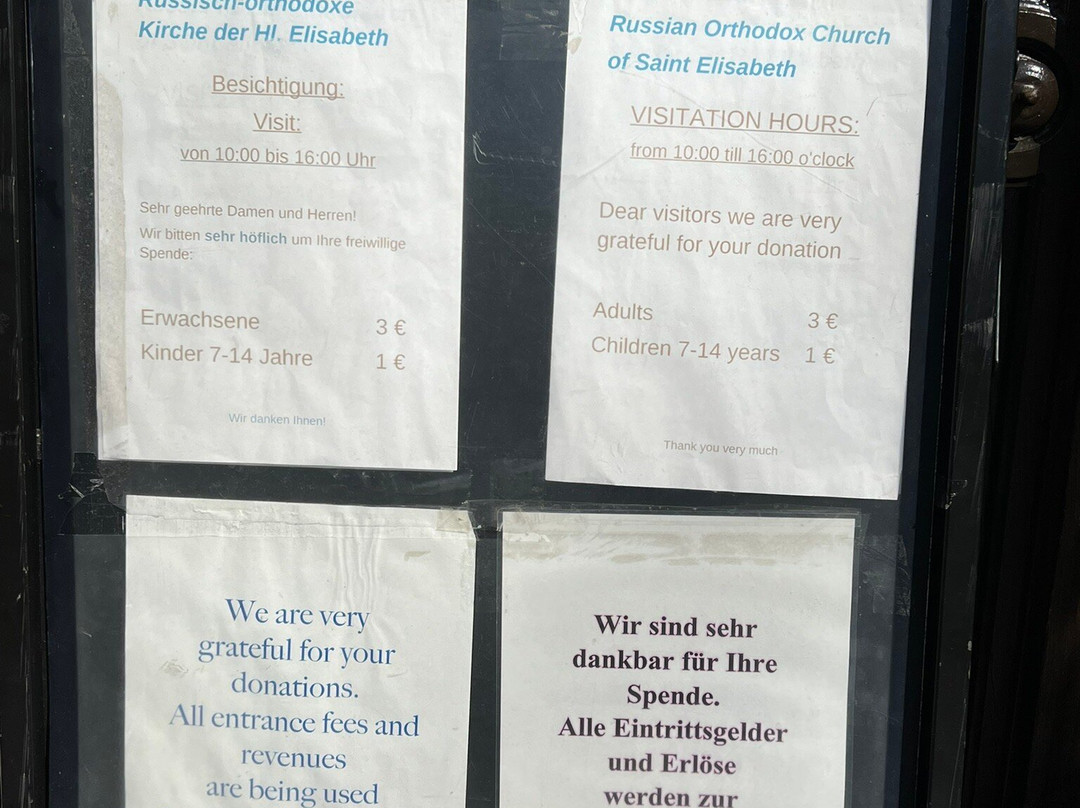 Russisch-orthodoxe
Kirche der Hl. Elisabeth
Besichtigung:
Visit:
von 10:00 bis 16:00 Uhr
Sehr geehrte Damen und Herren!
Wir bitten sehr höflich um Ihre freiwillige
Spende:
Erwachsene 3 €
Kinder 7-14 Jahre 1 €
Wir danken Ihnen!
Russian Orthodox Church
of Saint Elisabeth
VISITATION HOURS:
from 10:00 till 16:00 o'clock
Dear visitors we are very
grateful for your donation
Adults 3 €
Children 7-14 years 1 €
Thank you very much
We are very
grateful for your
donations.
All entrance fees and
revenues
are being used
Wir sind sehr
dankbar für Ihre
Spende.
Alle Eintrittsgelder
und Erlöse
werden zur